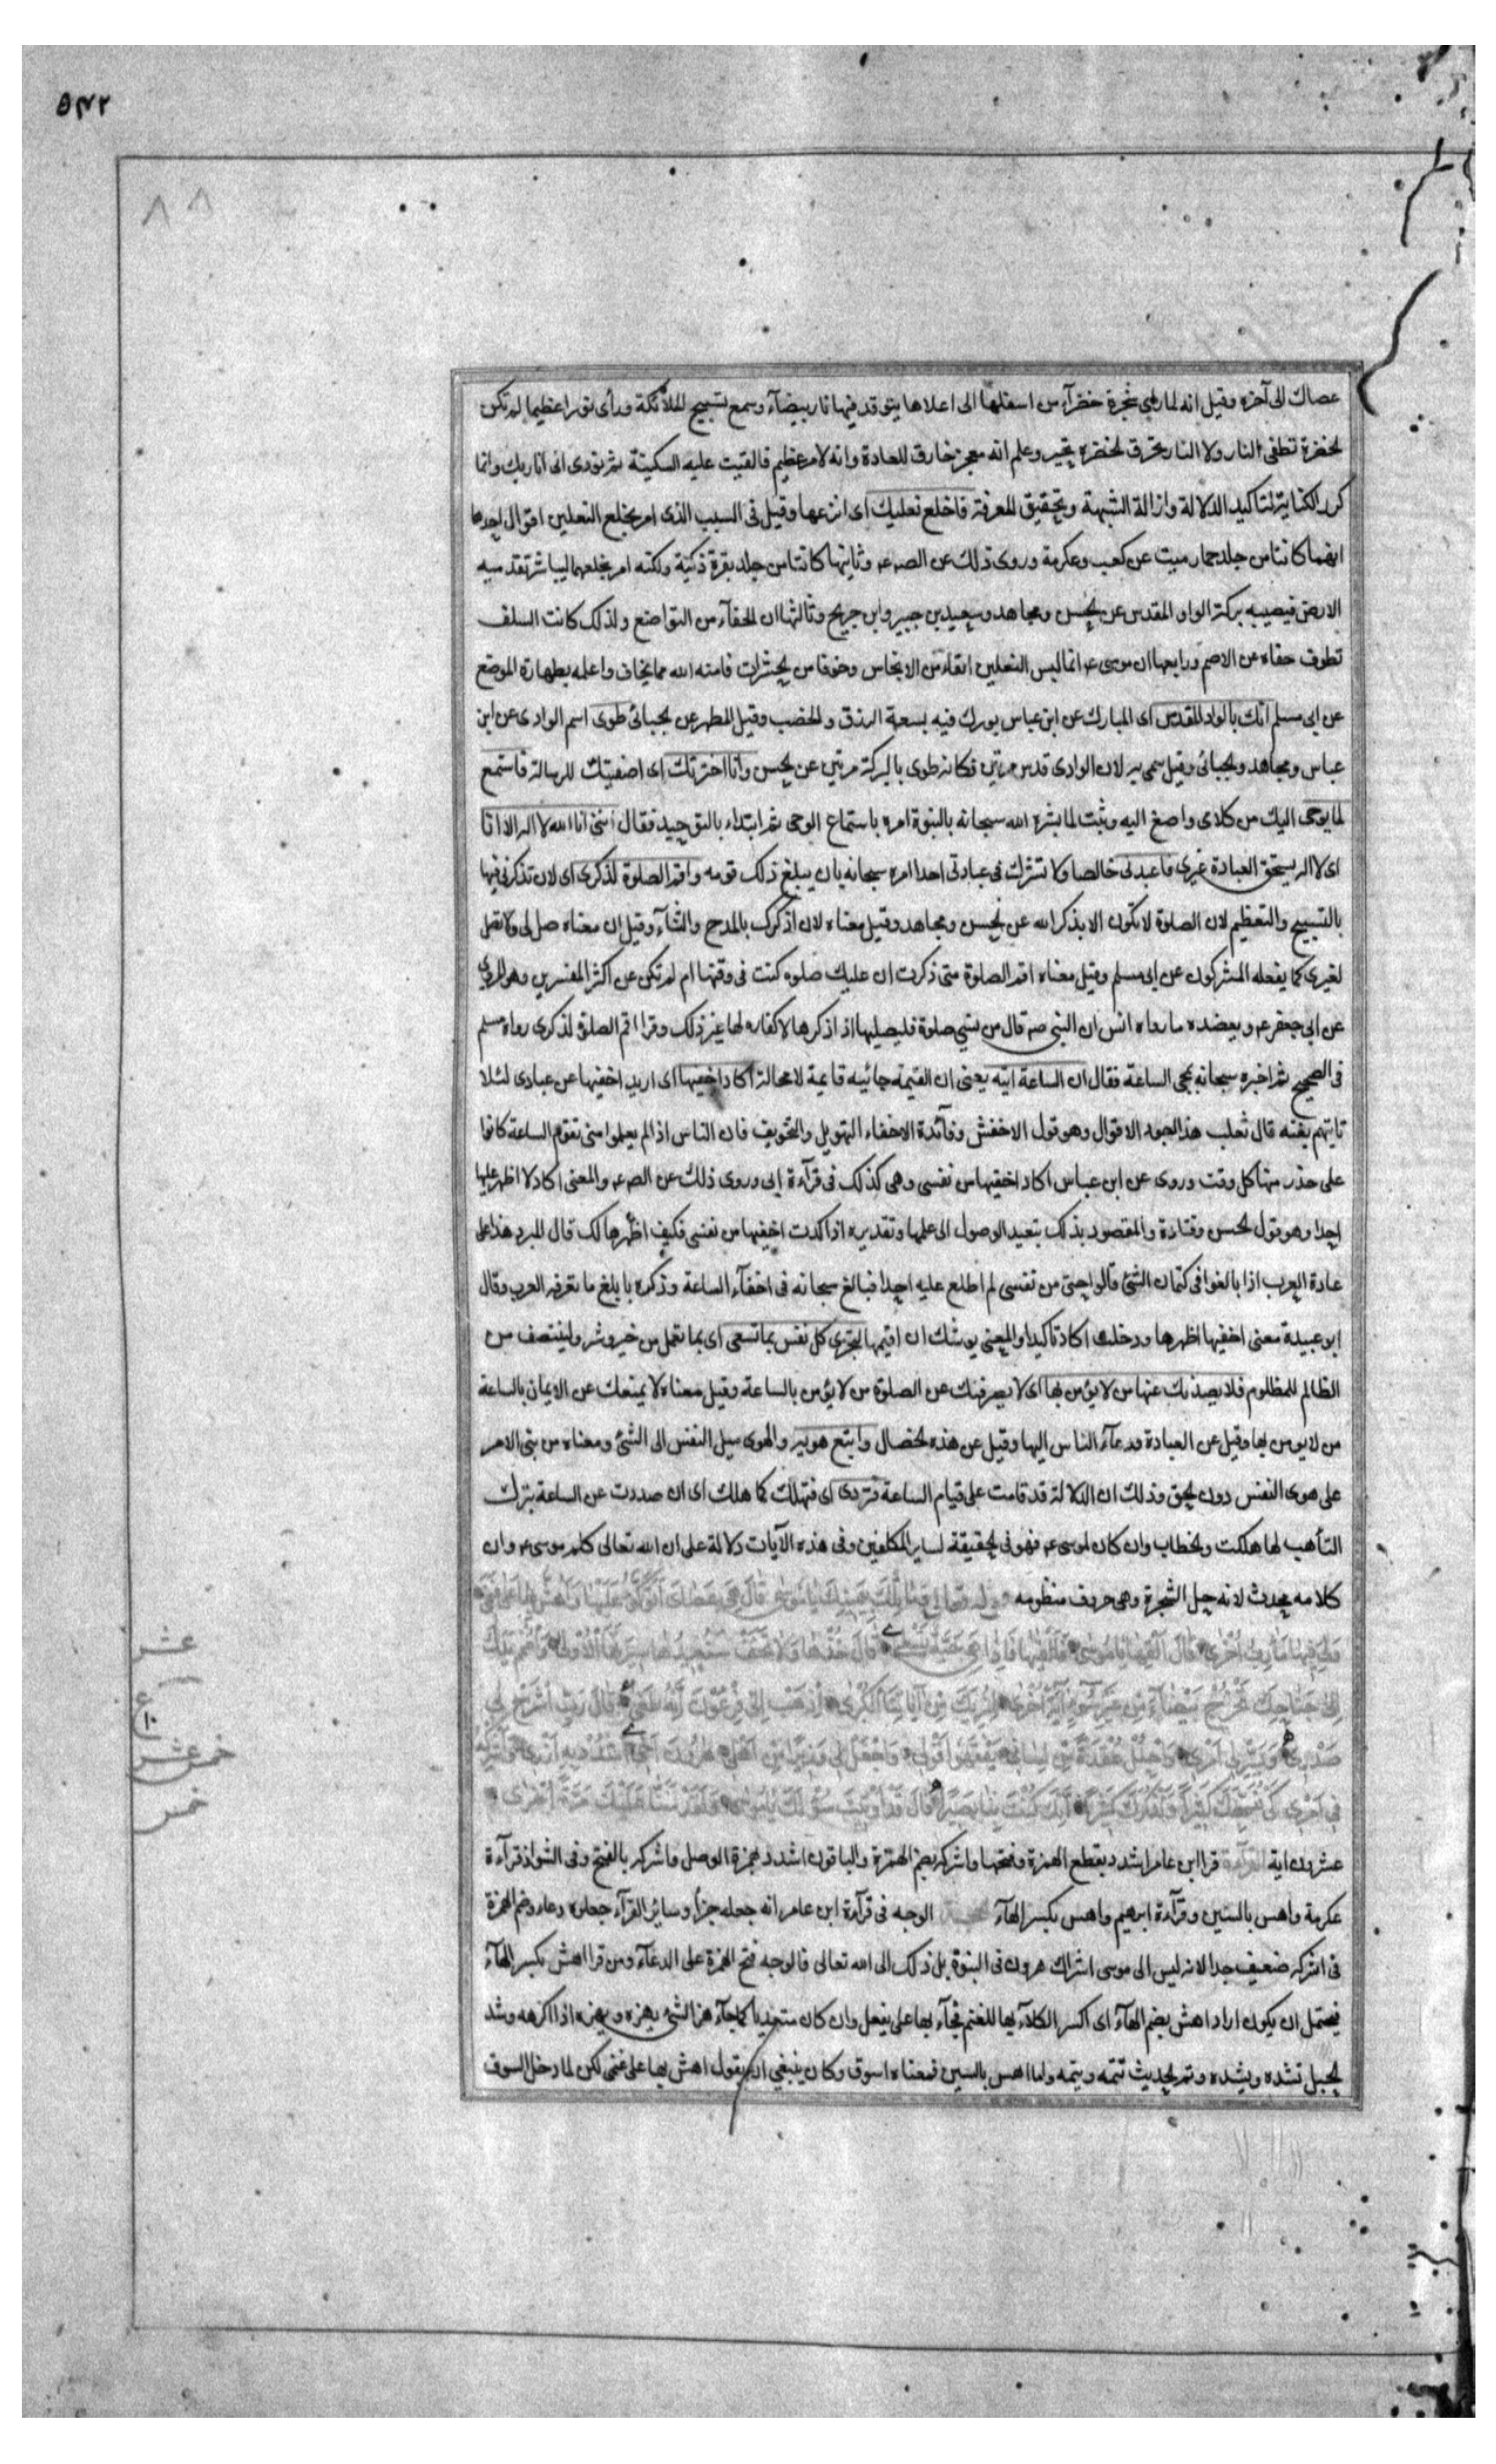 ۵۴۲
۸۸
عصاك الى آخره وقيل انه لما رأى شجرة خضرآء من اسفلها الى اعلاها يتوقد فيها نار بيضآء وسمع تسبيح الملائكة ورأى نورا عظيما لم تكن
الخضرة تطفى النار ولا النار تحرق الخضرة تحير وعلم انه معجز خارق للعادة وانه لامر عظيم فالقيت عليه السكينة ثم نودى انى انا ربك وانما
كرر الكناية لتاكيد الدلالة وازالة الشبهة وتحقيق المعرفة فاخلع نعليك اى انزعها وقيل فى السبب الذى امر بخلع النعلين اقوال احدها
انهما كانتا من جلد حمار ميت عن كعب وعكرمة وروى ذلك عن الصـ عـ وثانيها كانتا من جلد بقرة ذكية ولكنه امر بخلعهما ليباشر بقدميه
الارض فيصيبه بركة الواد المقدس عن الحسن ومجاهد وسعيد بن جبير وابن جريح وثالثها ان الحفآء من التواضع ولذلك كانت السلف
تطوف حفاه عن الاصم ورابعها ان موسى عـ انما لبس النعلين اتقاء من الانجاس وخوفا من الحشرات فامنه الله مما يخاف واعلمه بطهارة الموضع
عن ابى مسلم انك بالواد المقدس اى المبارك عن ابن عباس بورك فيه بسعة الرزق والخضب وقيل المطهر عن الجبائى طوى اسم الوادى عن ابن
عباس ومجاهد والجبائى وقيل سمى به لان الوادى قدس مرتين فكانه طوى بالبركة مرتين عن الحسن وأنا اخترتك اى اصفيتك للرسالة فاستمع
لما يوحى اليك من كلامى واصغ اليه وثبت لما بشره الله سبحانه بالنبوة امره باستماع الوحى ثم ابتداء بالتوحيد فقال اننى انا الله لا اله الا انا
اى لا اله يستحق العبادة غيرى فاعبدنى خالصا ولا تشرك فى عبادتى احدا امره سبحانه بان يبلغ ذلك قومه واقم الصلوة لذكرى اى لان تذكرنى فيها
بالتسبيح والتعظيم لان الصلوة لا تكون الا بذكر الله عن الحسن ومجاهد وقيل معناه لان اذكرك بالمدح والثنآء وقيل ان معناه صل لى ولا تصل
لغيرى كما يفعله المشركون عن ابى مسلم وقيل معناه اقم الصلوة متى ذكرت ان عليك صلوه كنت فى وقتها ام لم تكن عن اكثر المفسرين وهو المروى
عن ابى جعفر عـ ويعضده ما رواه انس ان النبى صـ قال من نسي صلوة فليصليها اذا ذكرها لا كفاره لها غير ذلك وقرا اقم الصلوة لذكرى رواه مسلم
فى الصحيح ثم اخبره سبحانه بمجى الساعة فقال ان الساعة اتيه يعنى ان القيمة جائيه قايمة لا محالة اكاد اخفيها اى اريد اخفيها عن عبادى لئلا
تاتيهم بغته قال ثعلب هذا اجود الاقوال وهو قول الاخفش وفآئدة الاخفاء التهويل والتخويف فان الناس اذا لم يعلموا متى تقوم الساعة كانوا
على حذر منها كل وقت وروى عن ابن عباس اكاد اخفيها من نفسى وهى كذلك فى قرآءة ابى وروى ذلك عن الصـ عـ والمعنى اكاد لا اظهر عليها
احدا وهو قول الحسن وقتادة والمقصود بذلك تبعيد الوصول الى علمها وتقديره اذا كدت اخفيها من نفسى فكيف اظهرها لك قال المبرد هذا على
عادة العرب اذا بالغوا فى كتمان الشئ قالوا حتى من نفسى لم اطلع عليه احدا فبالغ سبحانه فى اخفآء الساعة وذكره بابلغ ما تعرفه العرب وقال
ابو عبيدة معنى اخفيها اظهرها ودخلت اكاد تاكيدا والمعنى يوشك ان اقيمها لتجزى كل نفس بما تسعى اى بما تعمل من خير وشر ولينتصف من
الظالم للمظلوم فلا يصدنك عنها من لا يؤمن بها اى لا يصرفنك عن الصلوة من لا يؤمن بالساعة وقيل معناه لا يمنعك عن الايمان بالساعة
من لا يومن بها وقيل عن العبادة ودعآء الناس اليها وقيل عن هذه الخصال واتبع هويه والهوى ميل النفس الى الشئ ومعناه من بنى الامر
على هوى النفس دون الحق وذلك ان الدلالة قد قامت على قيام الساعة فتردى اى فتهلك كما هلك اى ان صددت عن الساعة بترك
التأهب لها هلكت والخطاب وان كان لموسى عـ فهو فى الحقيقة لساير المكلفين وفى هذه الآيات دلالة على ان الله تعالى كلم موسى عـ وان
كلامه محدث لانه حل الشجرة وهى حروف منظومه قوله تعالى وما تلك بيمينك يا موسى قال هى عصاى اتوكؤ عليها واهش بها على غنمى
ولى فيها مآرب اخرى قال القها يا موسى فالقيها فاذا هى حية تسعى قال خذها ولا تخف سنعيدها سيرتها الاولى واضمم يدك
الى جناحك تخرج بيضآء من غير سوء آية اخرى لنريك من آياتنا الكبرى اذهب الى فرعون انه طغى قال رب اشرح لى
صدرى ويسر لى امرى واحلل عقدة من لسانى يفقهوا قولى واجعل لى وزيرا من اهلى هرون اخى اشدد به ازرى واشركه
فى امرى كى نسبحك كثيرا ونذكرك كثيرا انك كنت بنا بصيرا قال قد اوتيت سؤلك يا موسى ولقد مننا عليك مرة اخرى
عشرون اية القرآءة قرا ابن عامر اشدد بقطع الهمزة وفتحها واشركه بضم الهمزة والباقون اشدد بهمزة الوصل واشركه بالفتح وفى الشواذ قرآءة
عكرمة واهس بالسين وقرآءة ابرهيم واهس بكسر الهآء الحجة الوجه فى قرآءة ابن عامر انه جعله جزآ وسائر القرآء جعلوه دعاء وضم الهمزة
فى اشركه ضعيف جدا لانه ليس الى موسى اشراك هرون فى النبوة بل ذلك الى الله تعالى فالوجه فتح الهمزة على الدعآء ومن قرا اهش بكسر الهآء
فيحتمل ان يكون اراد اهش بضم الهآء اى اكسر الكلآء بها للغنم فجآء بها على يفعل وان كان متعديا كما جآء هز الشئ يهزه ويهزه اذا اكرهه وشد
الحبل تشده ويشده وتم الحديث تتمه ويتمه واما اهس بالسين فمعناه اسوق وكان ينبغي ان يقول اهش بها على غنمى لكن لما دخل السوق
عشر
ع
١٠
خمس عشر
خمس